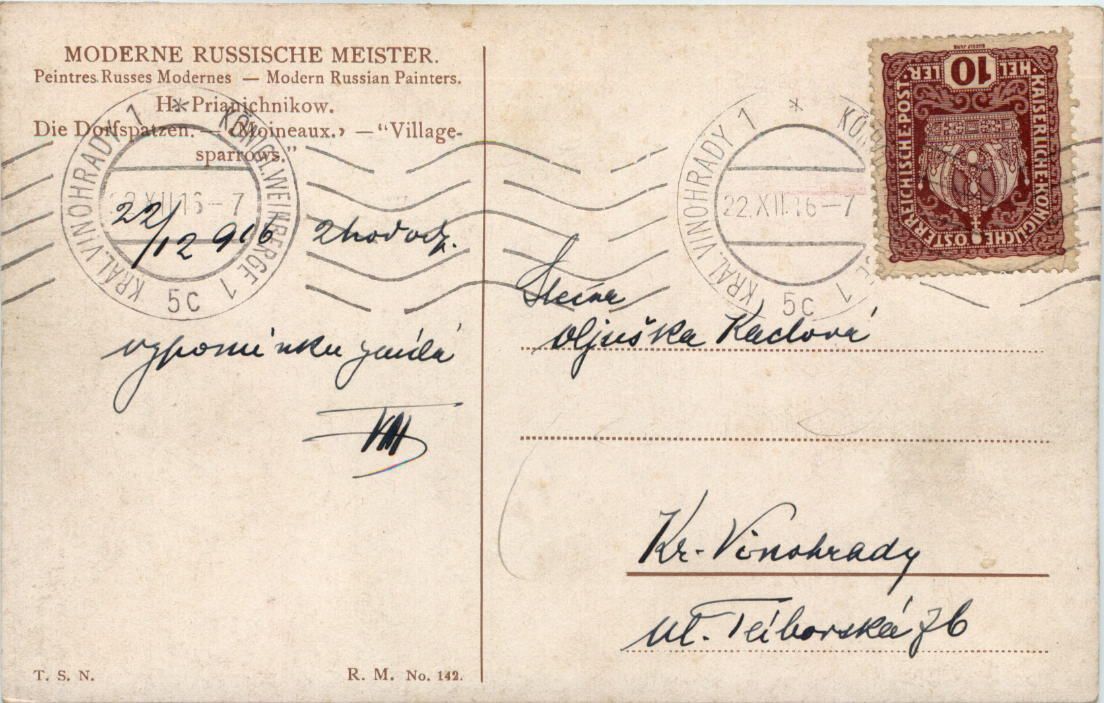 MODERNE RUSSISCHE MEISTER.
Peintres Russes Modernes — Modern Russian Painters.
H. Prianichnikow.
Die Dorfspatzen. — «Moineaux.» — "Village-
sparrows."
KRÁL. VINOHRADY 1 * KÖNIGL. WEINBERGE 1
22.XII.16—7
5c
22/12 916
vzpomínku
T. S. N.
R. M. No. 142.
KRÁL. VINOHRADY 1 *
22.XII.16—7
5c
KAISERLICHE·KÖNIGLICHE ÖSTERREICHISCHE·POST
10
HEL LER
Slečna
Oljuška Kadlová
Kr. Vinohrady
ul. 76